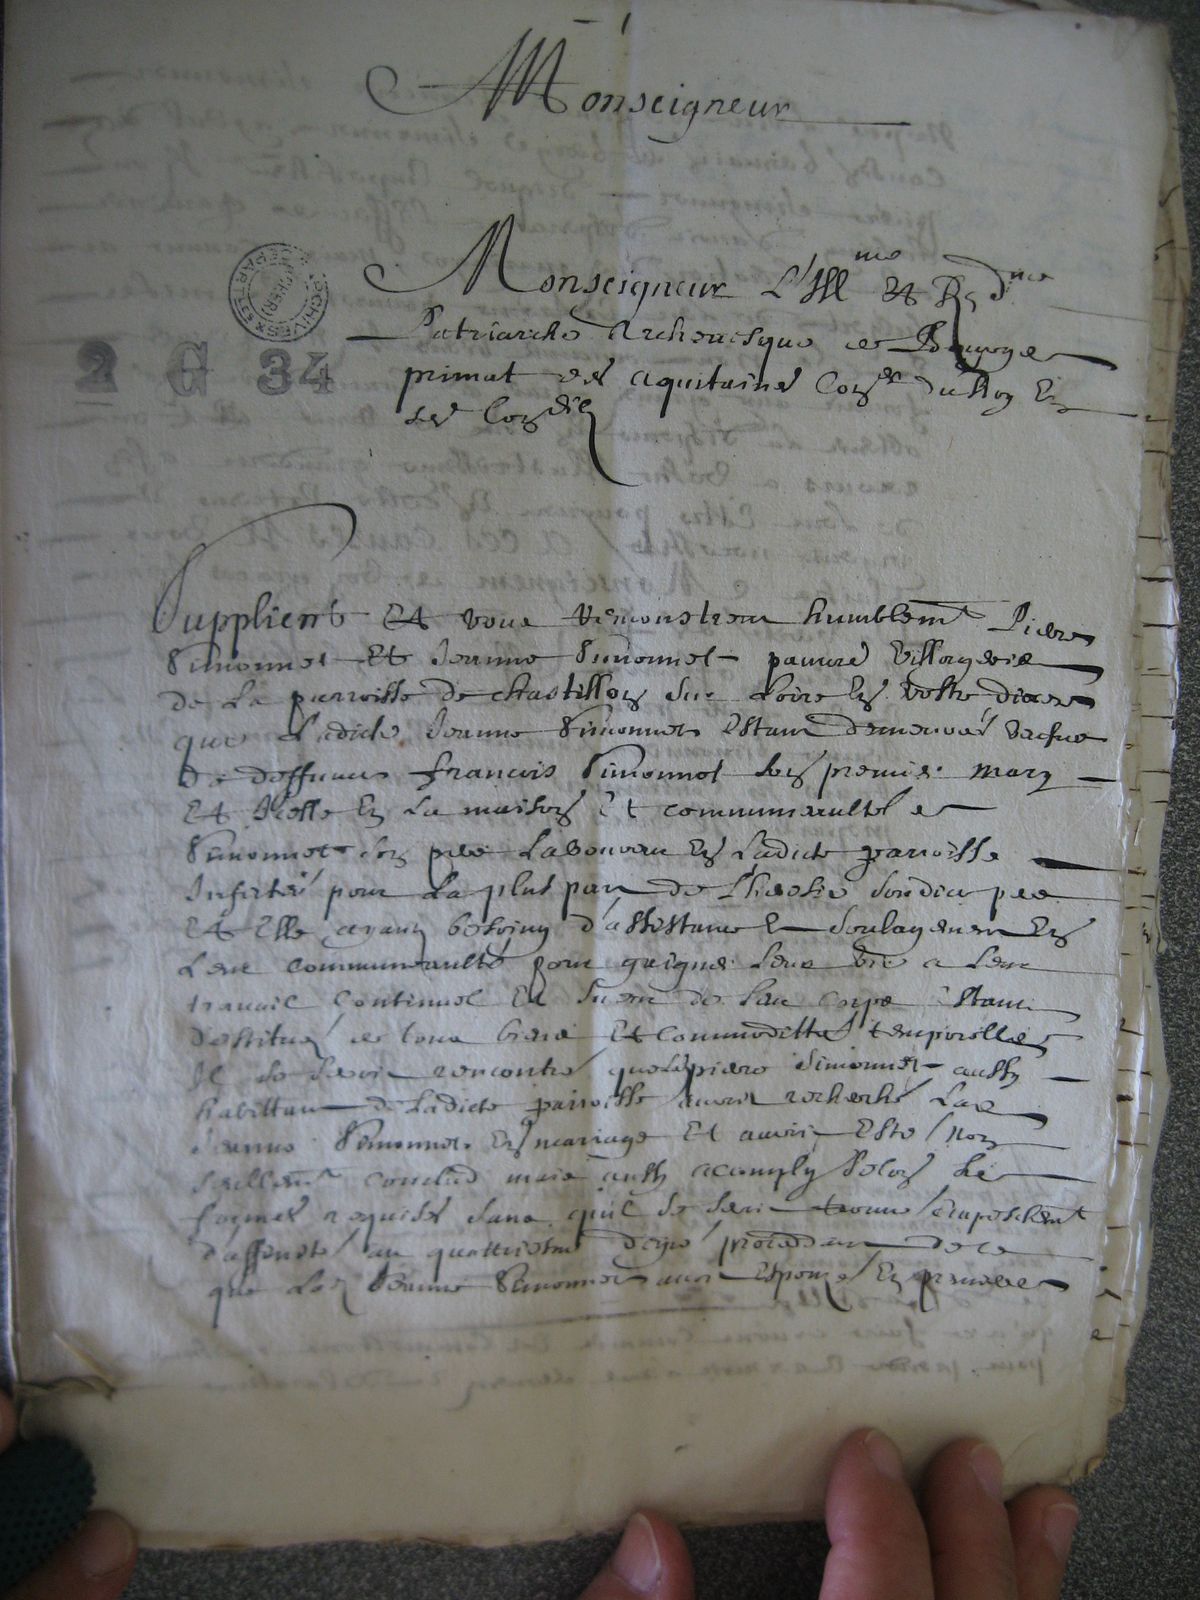 Monseigneur
Monseigneur L'Ill me et R dme
Patriarche Archevesque de Bourges
primat des aquitaines Con er du Roy en
ses Con eils
ARCHIVES DEPARTEM (CHER)
2 G 34
Supplient et vous remonstrent humblem t Pierre
Simonnet et Jeanne Simonnet pauvres villageois
de La parroisse de chastillon sur Loire en vostre dioceze
que Ladicte Jeanne Simonnet estant demeurée vefve
de deffunct francois Simonnet son premier mary
et icelle en La maison et communaulté de
Simonnet son pere Laboureur en Ladicte parroisse
Infectée pour La plus part de L'heresie sondict pere
et elle ayant besoing d'assistance et soulagement en
Leur communaulté pour gaigner Leur vie a Leur
travail continuel et sueur de Leur corps estant
destitués de tous biens et commodittés temporelles
Il se seroit rencontré que Led pierre Simonnet aussy
habittant de Ladicte parroisse auroit recherché Lad
Jeanne Simonnet en mariage et auroit esté non
seullem t conclud mais aussy acomply selon Les
formes requises sans qu'il se seroit trouvé empeschem t
d'affinité au quattriesme degré procedant de ce
que Lad Jeanne Simonnet avoit espouzé en premieres